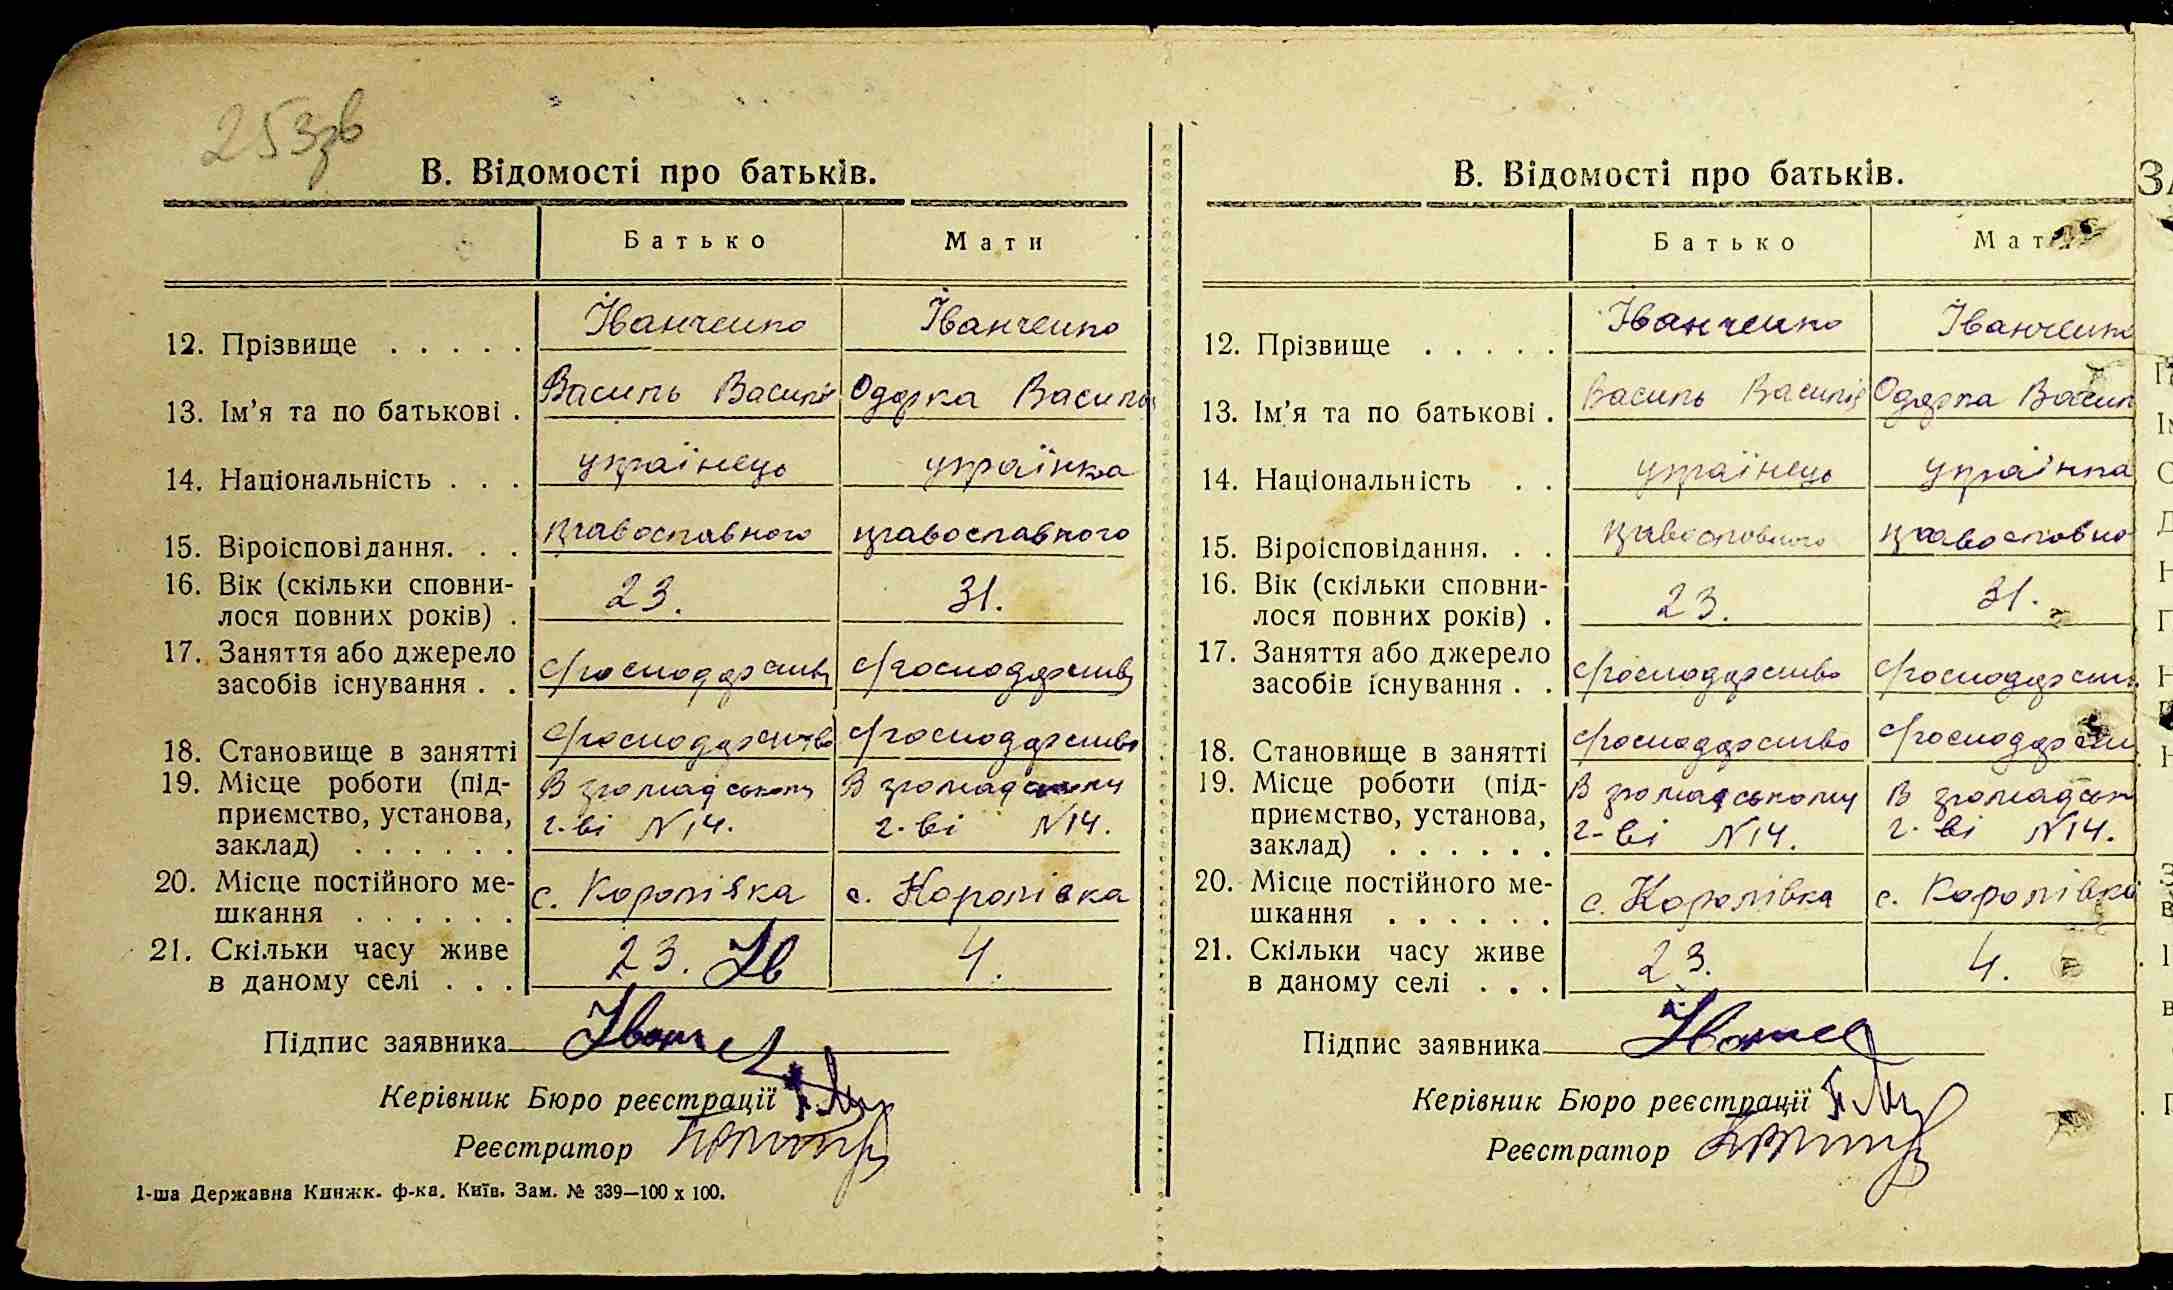 253зв
В. Відомості про батьків.
Батько Мати
12. Прізвище . . . . . Іванченко Іванченко
13. Ім'я та по батькові . Василь Василів Одарка Василів
14. Національність . . . українець українка
15. Віроісповідання. . . православного православного
16. Вік (скільки сповни-
лося повних років) . 23. 31.
17. Заняття або джерело
засобів існування . . с/господарство с/господарство
18. Становище в занятті с/господарство с/господарство
19. Місце роботи (під- В громадському В громадському
приємство, установа, г-ві N14. г-ві N14.
заклад) . . . . . .
20. Місце постійного ме-
шкання . . . . . . с. Королівка с. Королівка
21. Скільки часу живе
в даному селі . . . 23. Ів 4.
Підпис заявника
Керівник Бюро реєстрації
Реєстратор
1-ша Державна Книжк. ф-ка. Київ. Зам. № 339—100 х 100.
В. Відомості про батьків.
Батько Мати
12. Прізвище . . . . . Іванченко Іванченко
13. Ім'я та по батькові . Василь Василів Одарка Васил
14. Національність . . українець українка
15. Віроісповідання. . . православного православно
16. Вік (скільки сповни-
лося повних років) . 23. 31.
17. Заняття або джерело
засобів існування . . с/господарство с/господарств
18. Становище в занятті с/господарство с/господарств
19. Місце роботи (під- В громадському В громадськ
приємство, установа, г-ві N14. г-ві N14.
заклад) . . . . . .
20. Місце постійного ме-
шкання . . . . . . с. Королівка с. Королівка
21. Скільки часу живе
в даному селі . . . 23. 4.
Підпис заявника
Керівник Бюро реєстрації
Реєстратор